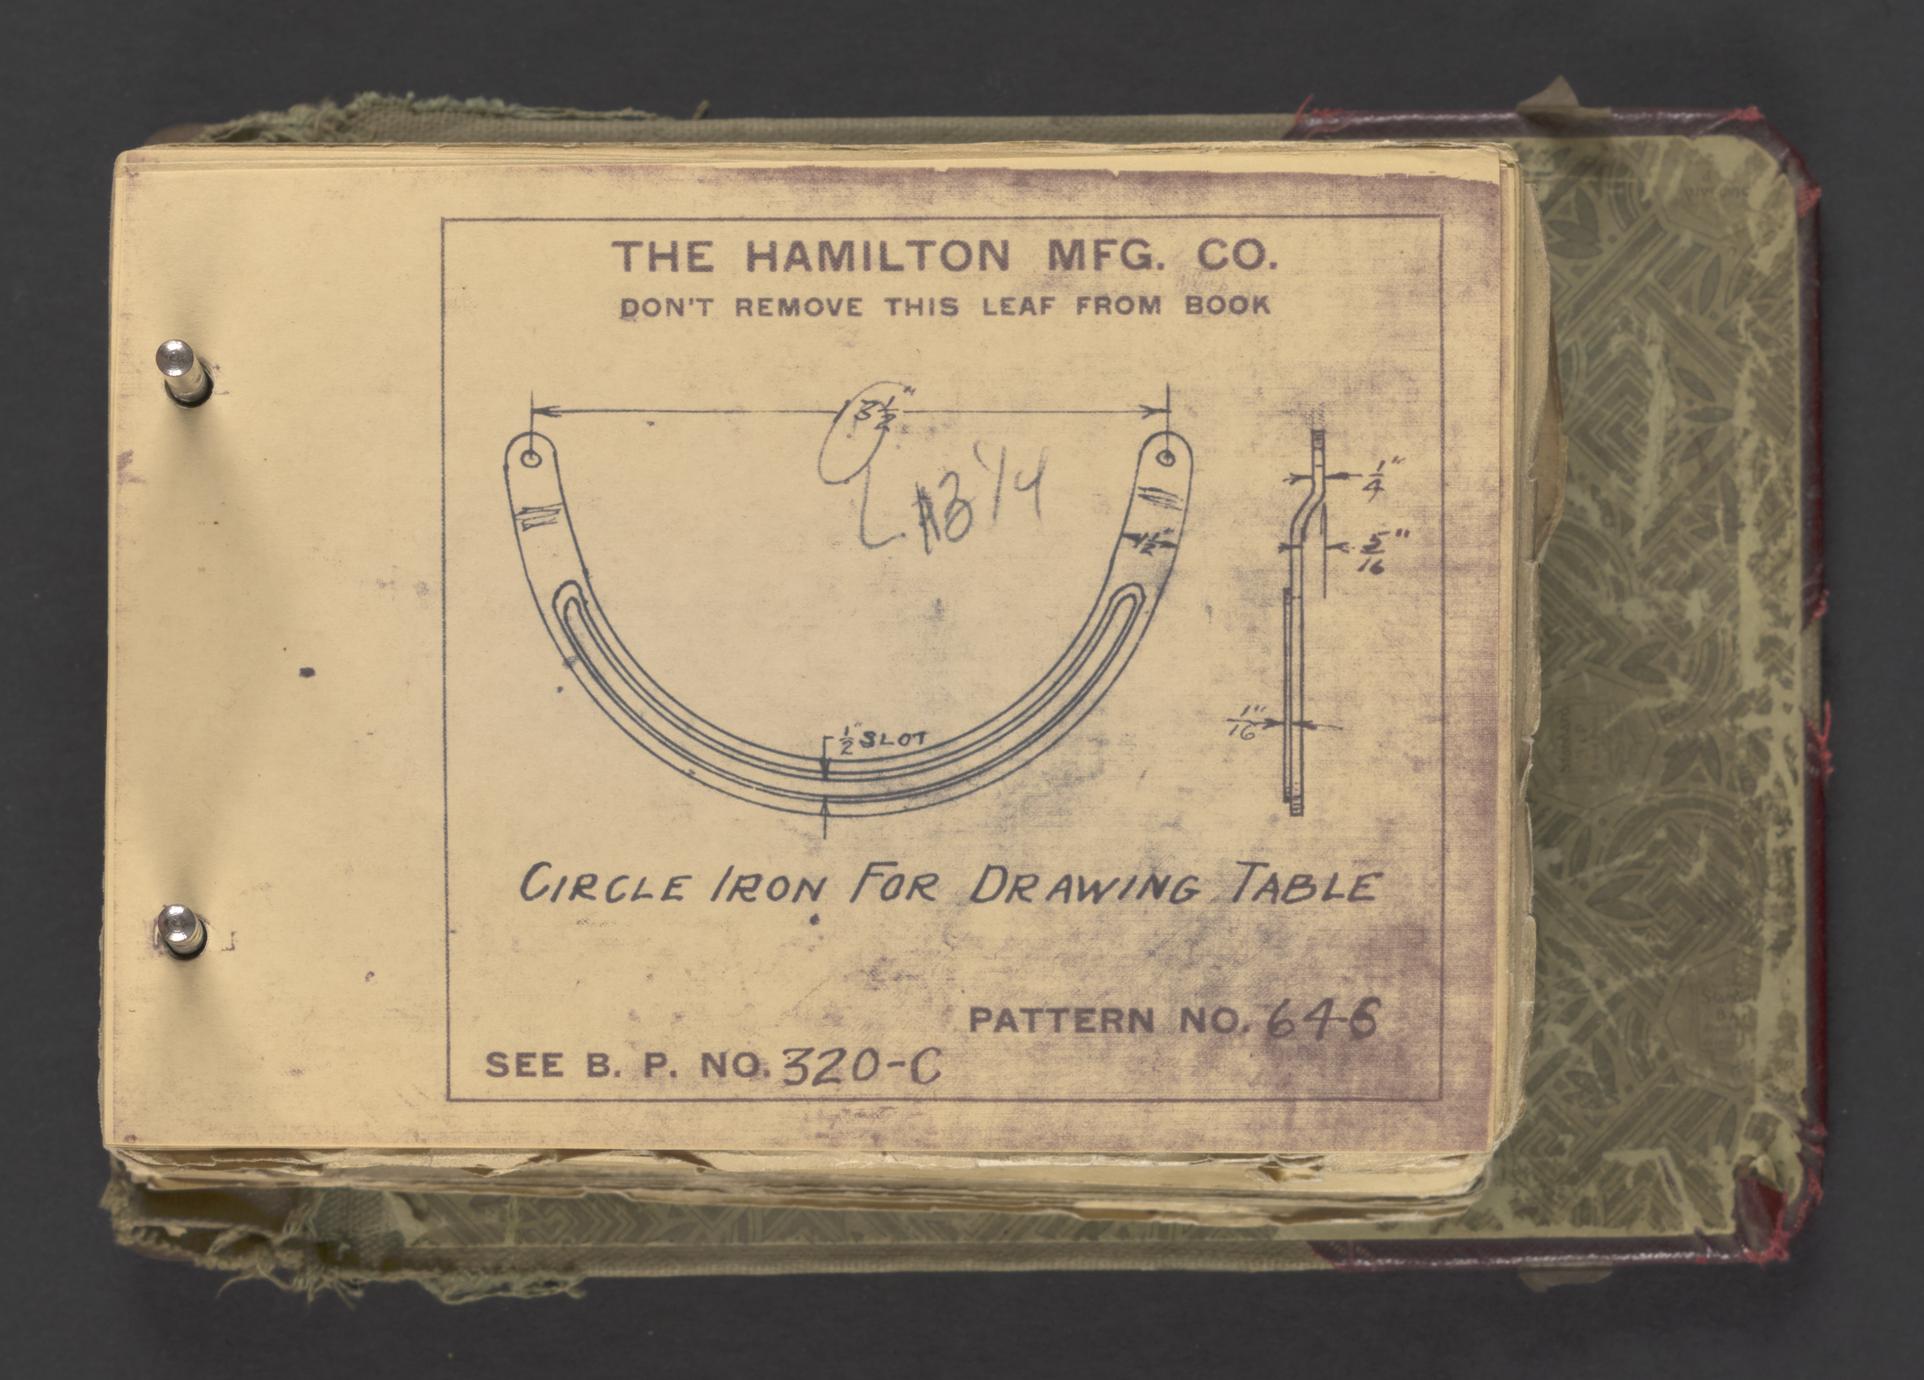 THE HAMILTON MFG. CO.
DON'T REMOVE THIS LEAF FROM BOOK
3½"
13 1/4
1/4"
5/16"
½" SLOT
1/16"
CIRCLE IRON FOR DRAWING TABLE
PATTERN NO. 646
SEE B. P. NO. 320-C